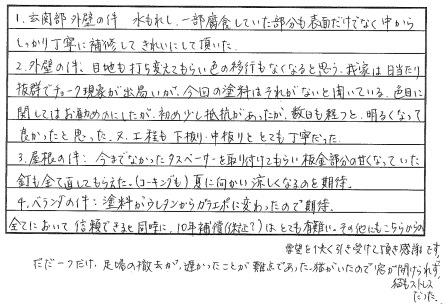 1.玄関部外壁の件 水もれし、一部腐食していた部分も表面だけでなく中から
しっかり丁寧に補修してきれいにして頂いた。
2.外壁の件、目地も打ち変えてもらい色の移行もなくなると思う。我家は日当たり
抜群でチョーク現象が出易いが、今回の塗料はそれがないと聞いている。色目に
関してはお勧めかにしたが、初め少し抵抗があったが、数日も経つと、明るくなって
良かったと思った。又、工程も下抜り・中抜りととても丁寧だった。
3.屋根の件:今までなかったタスペーサーを取り付けてもらい板金部分の甘くなっていた
釘も全て直してもらえた。(コーキングも)夏に向かい涼しくなるのを期待。
4.ベランダの件:塗料がウレタンからガラエポに変わったので期待。
全てにおいて信頼できると同時に、10年補償(保証?)はとても有難い。その他にもこちらからの
希望を快く引き受けて頂き感謝です。
ただ一つだけ、足場の撤去が、遅かったことが難点であった。猫がいたので窓が開けられず、
猫もストレス
だった。